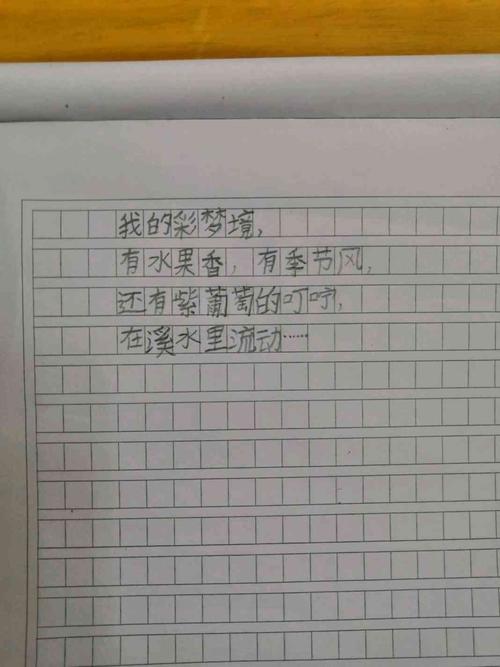 我的彩梦境，
有水果香，有季节风，
还有紫葡萄的叮咛，
在溪水里流动……